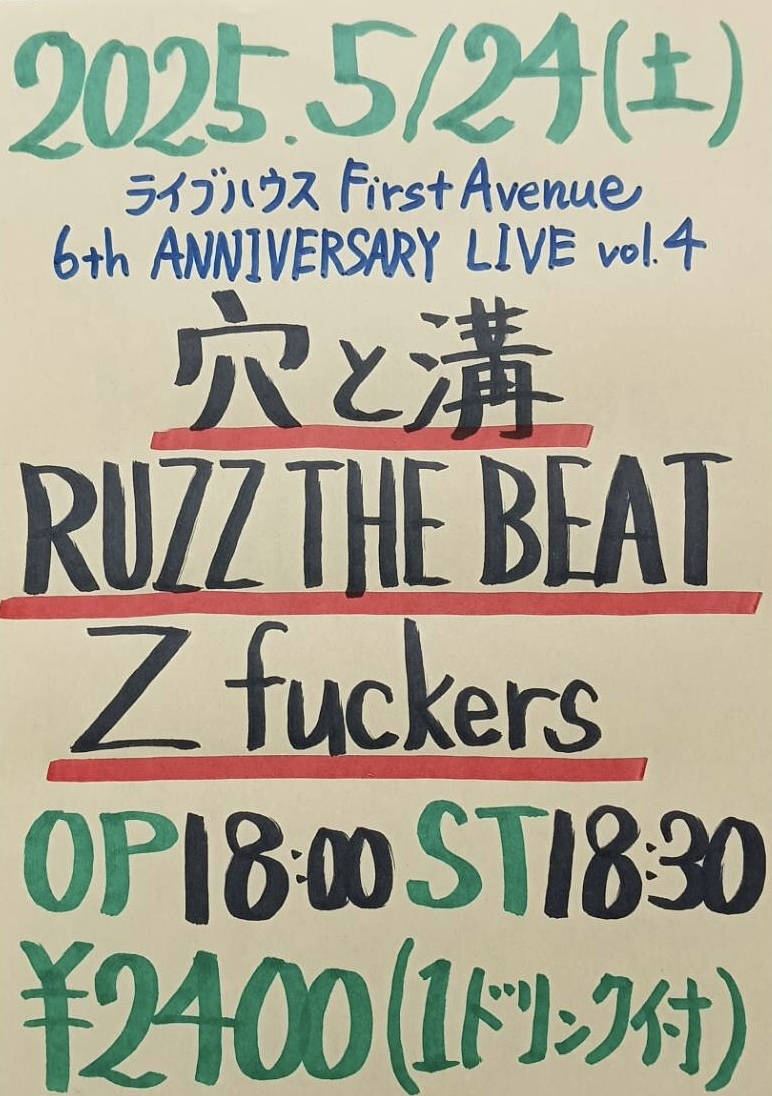 2025.5/24(土)
ライブハウス First Avenue
6th ANNIVERSARY LIVE vol.4
穴と溝
RUZZ THE BEAT
Z fuckers
OP18:00 ST18:30
¥2400(1ドリンク付)